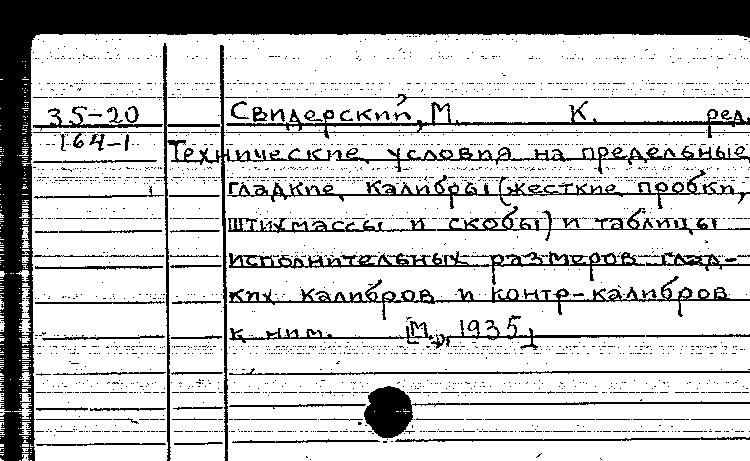 35-20 Свидерский, М. К. ред.
164-1 Технические условия на предельные
гладкие калибры (жесткие пробки,
штихмассы и скобы) и таблицы
исполнительных размеров глад-
ких калибров и контр-калибров
к ним. [М., 1935]